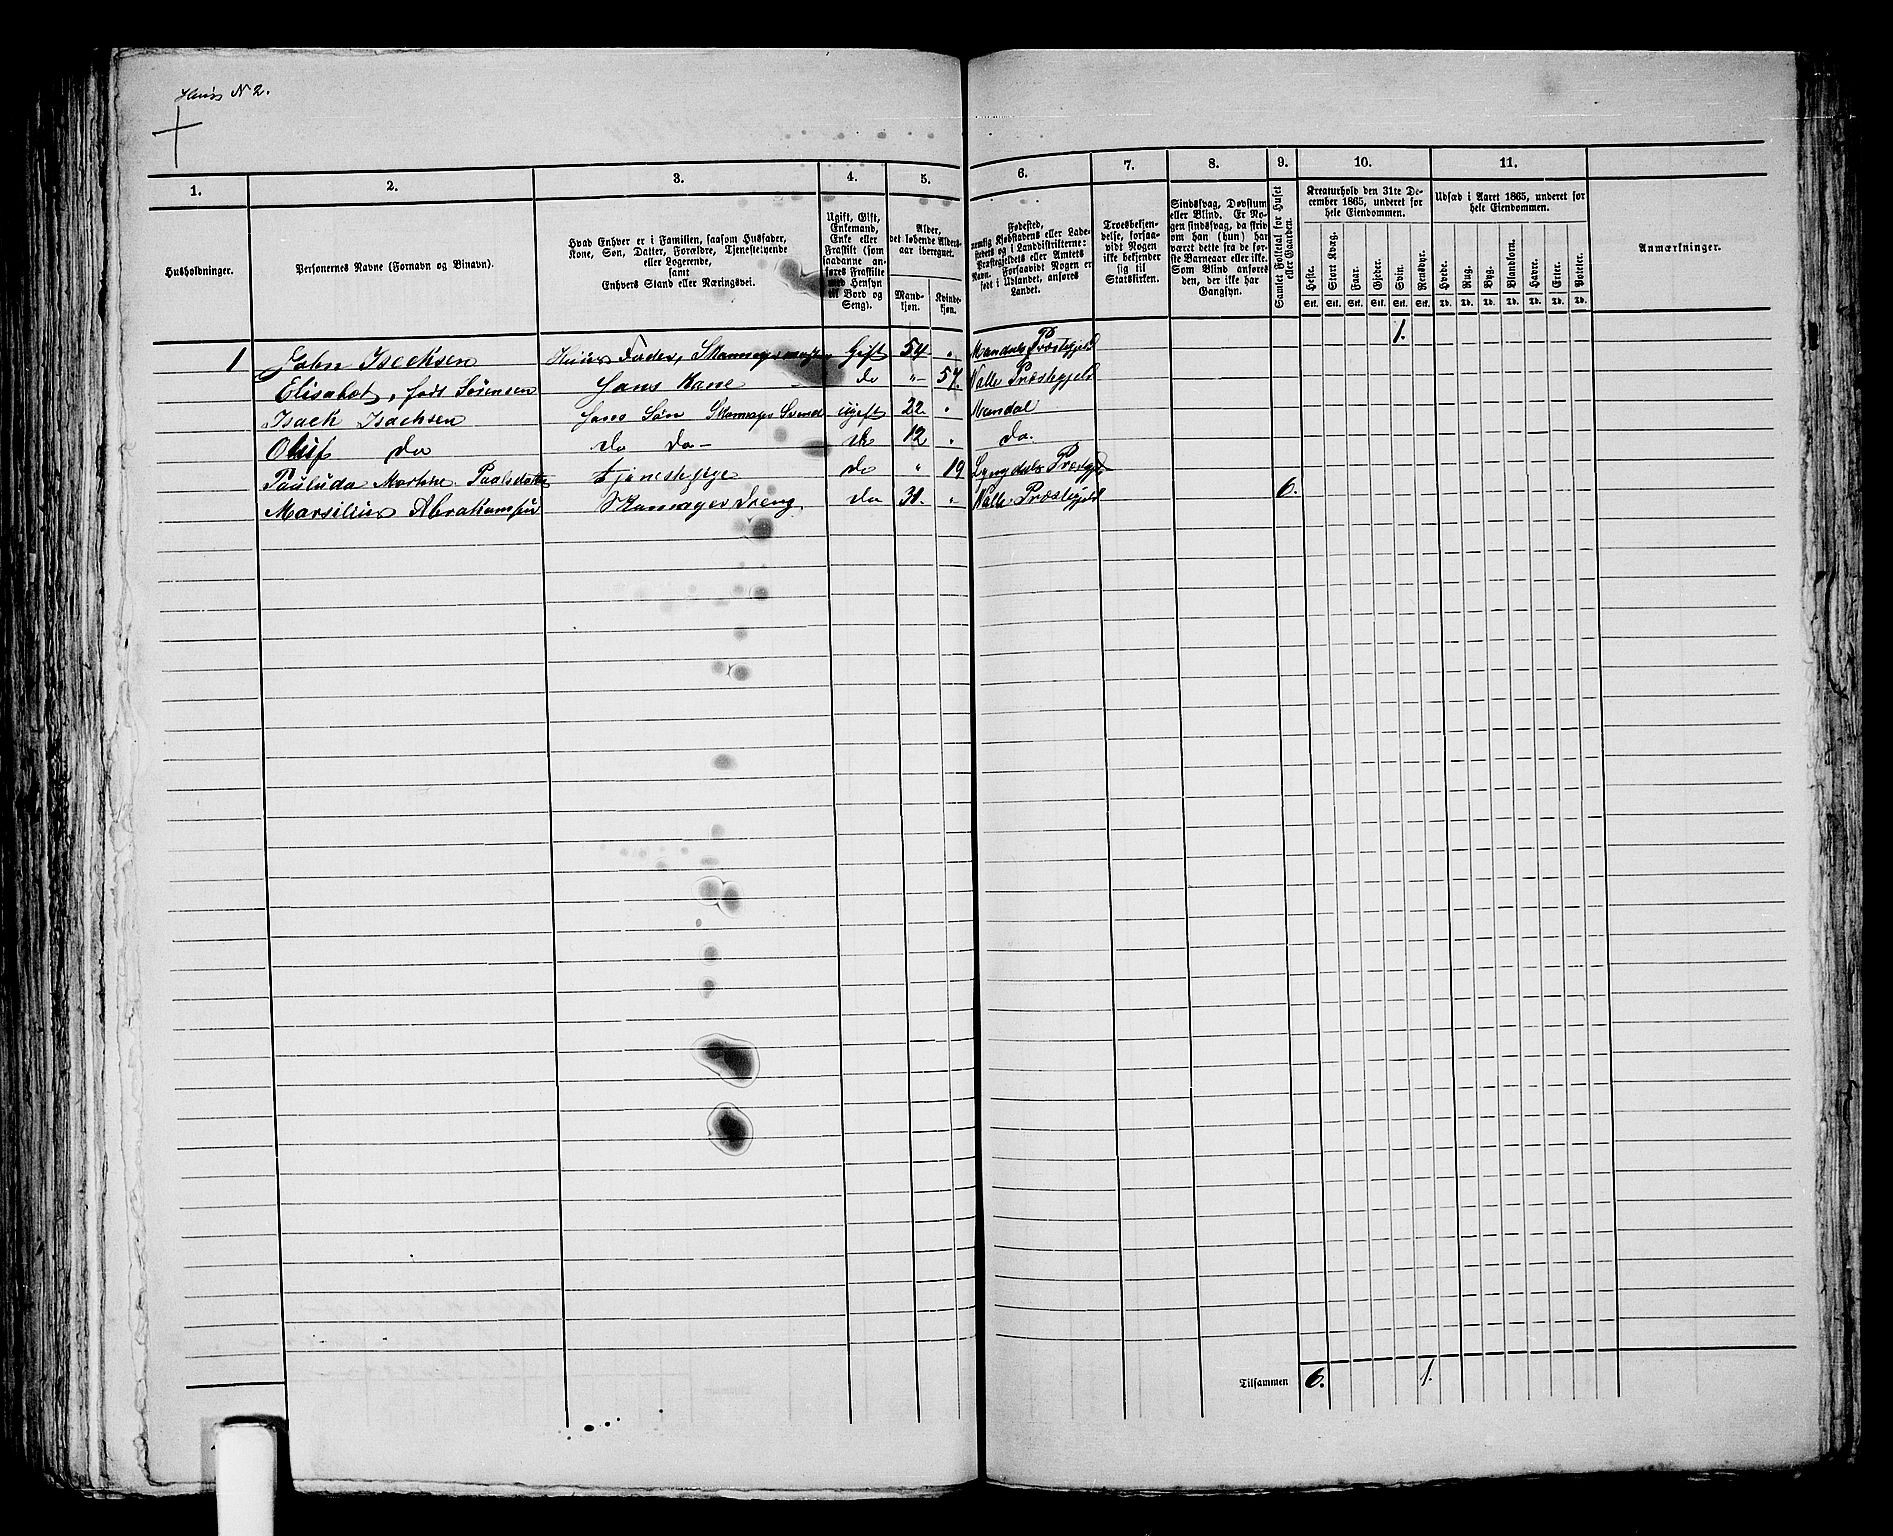 Huus N 2.
1. 2. 3. 4. 5. 6. 7. 8. 9. 10. 11.
Husholdninger.
Personernes Navne (Fornavn og Binavn).
Hvad Enhver er i Familien, saasom Husfader,
Kone, Søn, Datter, Forældre, Tjenestetyende
eller Logerende,
samt
Enhvers Stand eller Næringsvei.
Ugift, Gift,
Enkemand,
Enke eller
Fraskilt (som
saadanne an-
føres Fraskilte
med Hensyn
til Bord og
Seng).
Alder,
det løbende Alders-
aar iberegnet.
Mand-
kjøn.
Kvinde-
kjøn.
Fødested,
nemlig Kjøbstadens eller Lade-
stedets og i Landdistrikterne:
Præstegjeldets eller Amtets
Navn. Forsaavidt Nogen er
født i Udlandet, anføres
Landet.
Troesbekjen-
delse, forsaa-
vidt Nogen
ikke bekjender
sig til
Statskirken.
Sindssvag, Døvstum
eller Blind. Er No-
gen sindssvag, da skriv
om han (hun) har
været dette fra de før-
ste Barneaar eller ikke.
Som Blind anføres
den, der ikke har
Gangsyn.
Samlet Folketal for Huset
eller Gaarden.
Kreaturhold den 31te De-
cember 1865, underet for
hele Eiendommen.
Heste. Stort Kvæg. Faar. Gjeder. Svin. Rensdyr.
Stk. Stk. Stk. Stk. Stk. Stk.
Udsæd i Aaret 1865, underet for
hele Eiendommen.
Hvede. Rug. Byg. Blandkorn. Havre. Erter. Poteter.
Td. Td. Td. Td. Td. Td. Td.
Anmærkninger.
1 John Isecksen Huus Fader, Gift 54 " Mandals Præstegjeld 1.
Elisabet, født Sørensen Hans Kone do " 57. Halle Præstegjeld
Isack Isachsen Hans Søn Svend ugift 22 " Mandal
Oluf do do do do 12 " do.
Martine Paalsdatter Tjenestepige do " 19 Lyngdals Præstegjeld
Marsilius Abrahamsen Dreng do 31. " Halle Præstegjeld 6.
Tilsammen 6. 1.